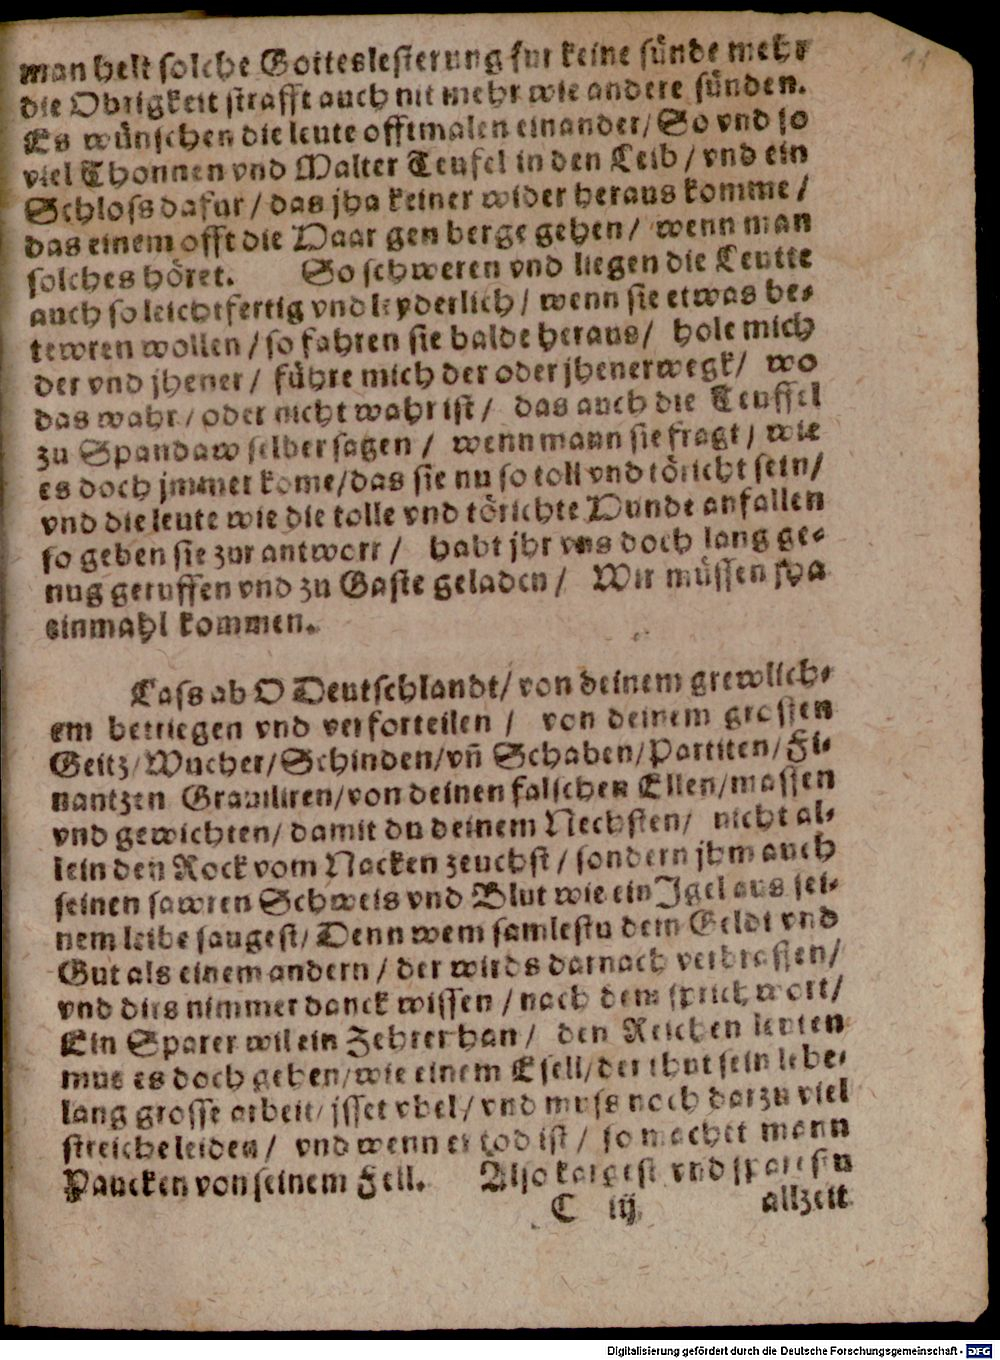 man helt solche Gotteslesterung fur keine sünde mehr
die Obrigkeit strafft auch nit mehr wie andere sünden.
Es wünschen die leute offtmalen einander/ So vnd so
viel Thonnen vnd Malter Teufel in den Leib / vnd ein
Schloss dafur / das jha keiner wider heraus komme /
das einem offt die Haar gen berge gehen / wenn man
solches höret. So schweren vnd liegen die Leutte
auch so leichtfertig vnd leyderlich / wenn sie etwas be-
tewren wollen / so fahren sie balde heraus / hole mich
der vnd jhener / führe mich der oder jhener wegk / wo
das wahr / oder nicht wahr ist / das auch die Teuffel
zu Spandaw selber sagen / wenn mann sie fragt / wie
es doch jmmer kome/das sie nu so toll vnd töricht sein/
vnd die leute wie die tolle vnd törichte Hunde anfallen
so geben sie zur antwort / habt jhr vns doch lang ge-
nug geruffen vnd zu Gaste geladen / Wir müssen jha
einmahl kommen.
Lass ab O Deutschlandt/ von deinem grewlich-
em betriegen vnd verforteilen / von deinem grossen
Geitz/Wucher/Schinden/vn̄ Schaben/Partiten/Fi-
nantzen Graviliren/von deinen falschen Ellen/massen
vnd gewichten/ damit du deinem Nechsten/ nicht al-
lein den Rock vom Nacken zeuchst / sondern jhm auch
seinen sawren Schweis vnd Blut wie ein Jgel aus sei-
nem leibe saugest/ Denn wem samlestu dein Geldt vnd
Gut als einem andern / der wirds darnach verbrassen/
vnd dirs nimmer danck wissen / nach dem sprichwort/
Ein Sparer wil ein Zehrer han / den Reichen leuten
mus es doch gehen/wie einem Esell/der thut sein lebe-
lang grosse arbeit/ jsset vbel / vnd muss noch darzu viel
streiche leiden / vnd wenn er tod ist / so machet mann
Paucken von seinem Fell. Also kargest vnd sparestu
C iij allzeit
Digitalisierung gefördert durch die Deutsche Forschungsgemeinschaft - DFG